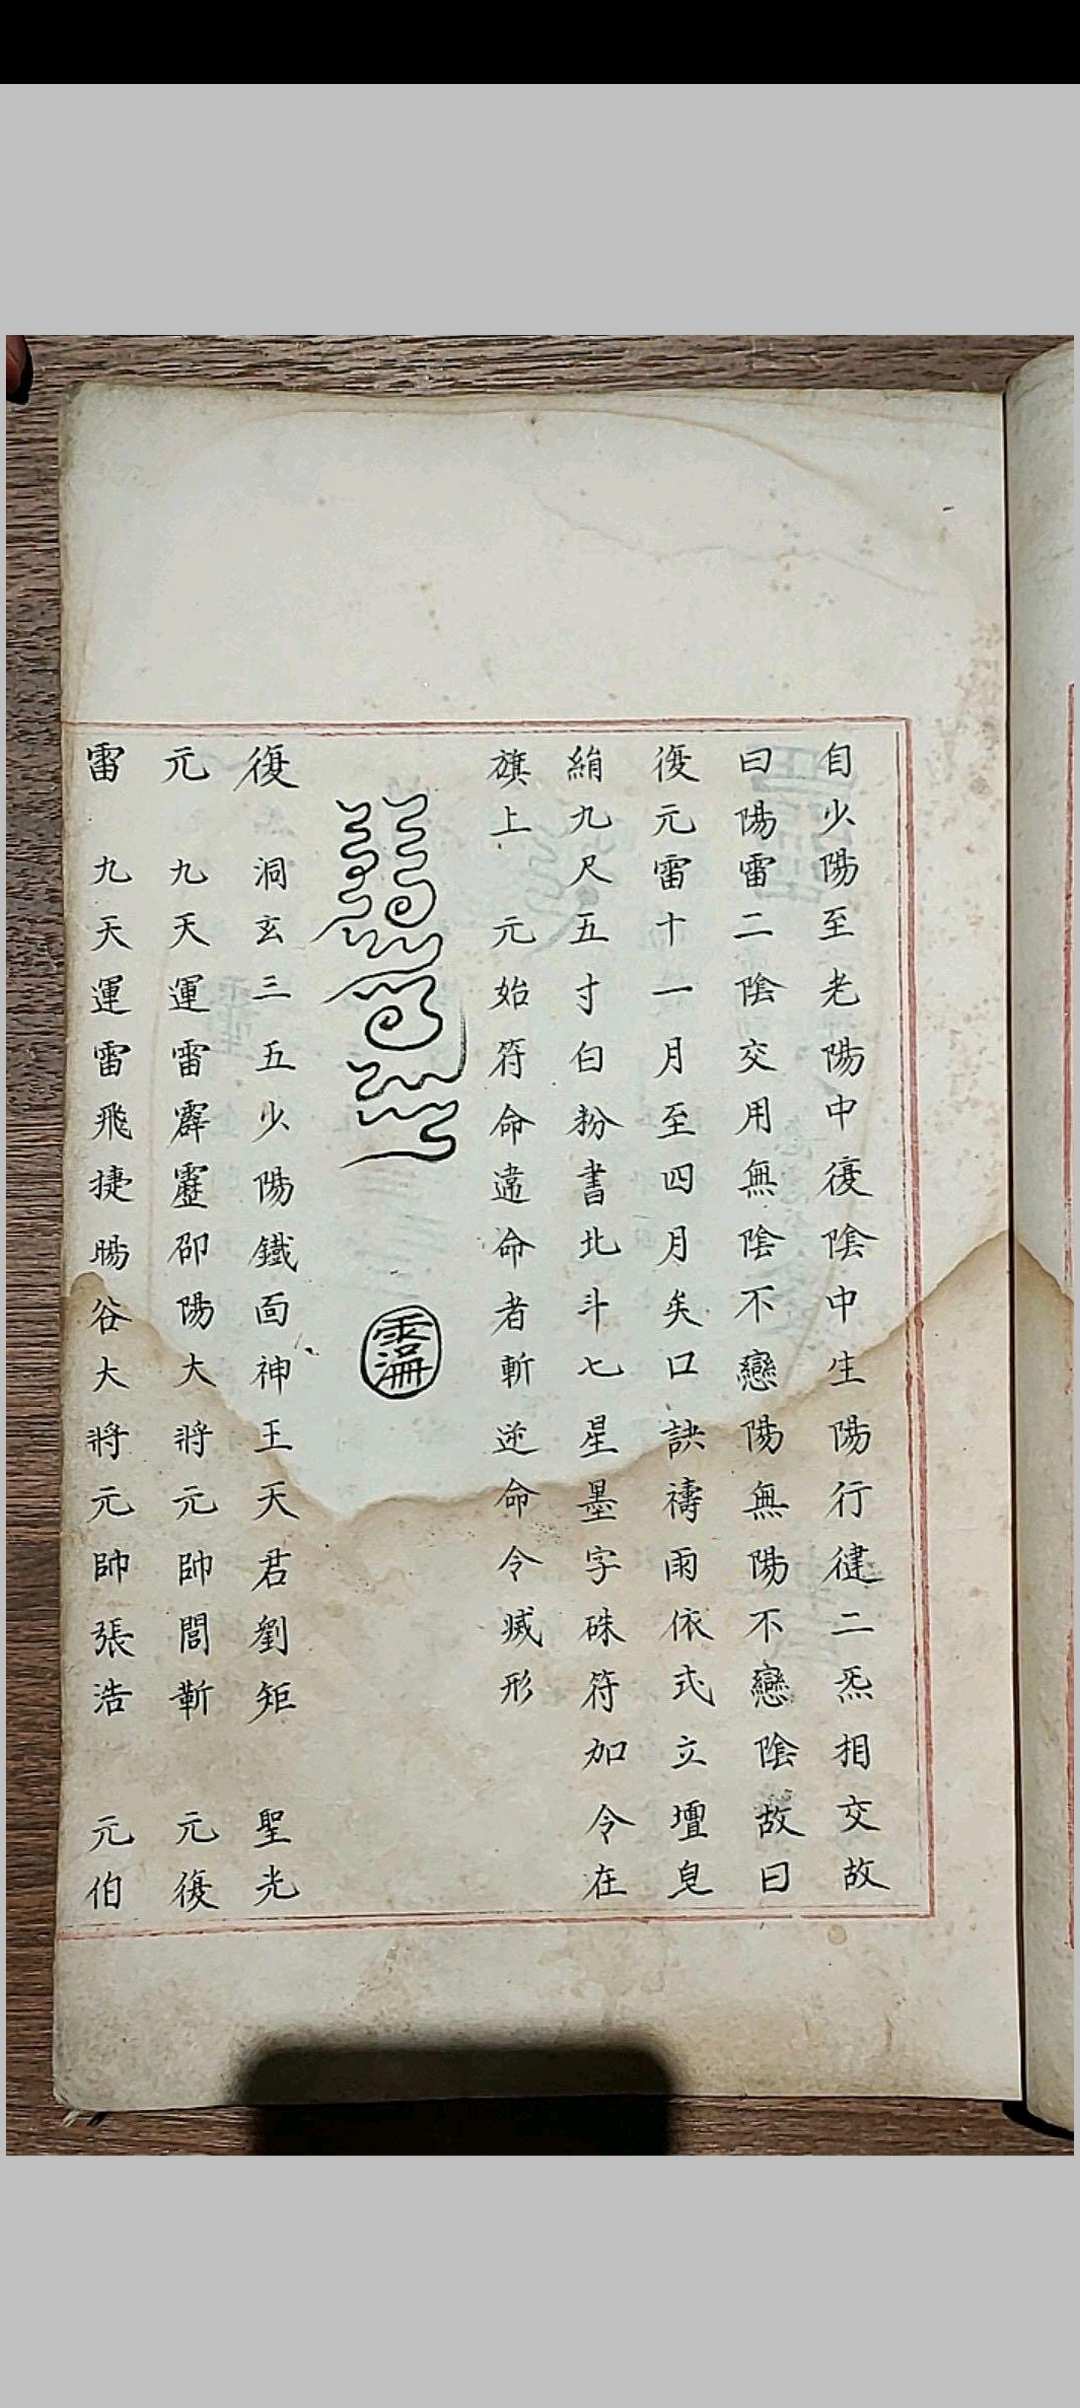 自少陽至老陽中復陰中生陽行健二炁相交故
曰陽雷二陰交用無陰不戀陽無陽不戀陰故曰
復元雷十一月至四月矣口訣禱雨依式立壇皂
絹九尺五寸白粉書北斗七星墨字硃符加令在
旗上 元始符命違命者斬逆命令滅形
復 洞玄三五少陽鐵面神王天君劉矩 聖光
元 九天運雷霹靂邵陽大將元帥閻靳 元復
雷 九天運雷飛捷暘谷大將元帥張浩 元伯